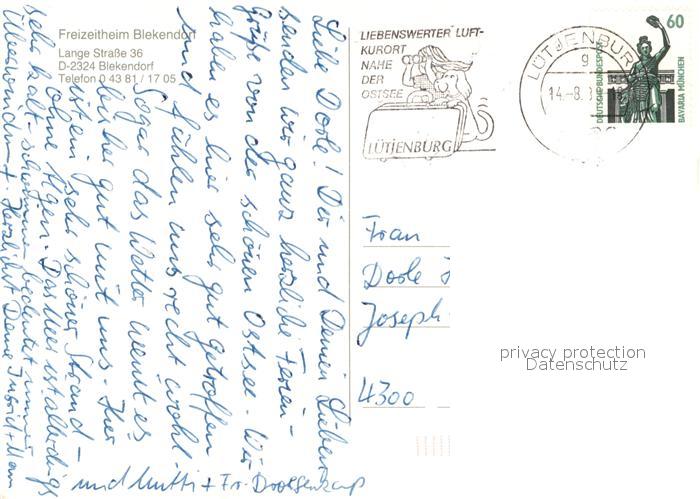 Freizeitheim Blekendorf
Lange Straße 36
D-2324 Blekendorf
Telefon 0 43 81 / 17 05
LIEBENSWERTER LUFT-
KURORT
NAHE
DER
OSTSEE
LÜTJENBURG
LÜTJENBURG
14.-8.
60
DEUTSCHE BUNDESPOST
BAVARIA MÜNCHEN
Liebe Dorle! Dir und Deinen Lieben
senden wir ganz herzliche Ferien-
grüße von der schönen Ostsee. Wir
haben es hier sehr gut getroffen
und fühlen uns recht wohl.
Sogar das Wetter meint es
bisher gut mit uns. Hier
ist ein sehr schöner Strand -
ohne Algen. Das Meer ist allerdings
sehr kalt - schwimmen bedeutet immer
Überwindung. Herzlichst Deine
und Mutti + Fr.
Frau
Dorle
Joseph
4300
privacy protection
Datenschutz